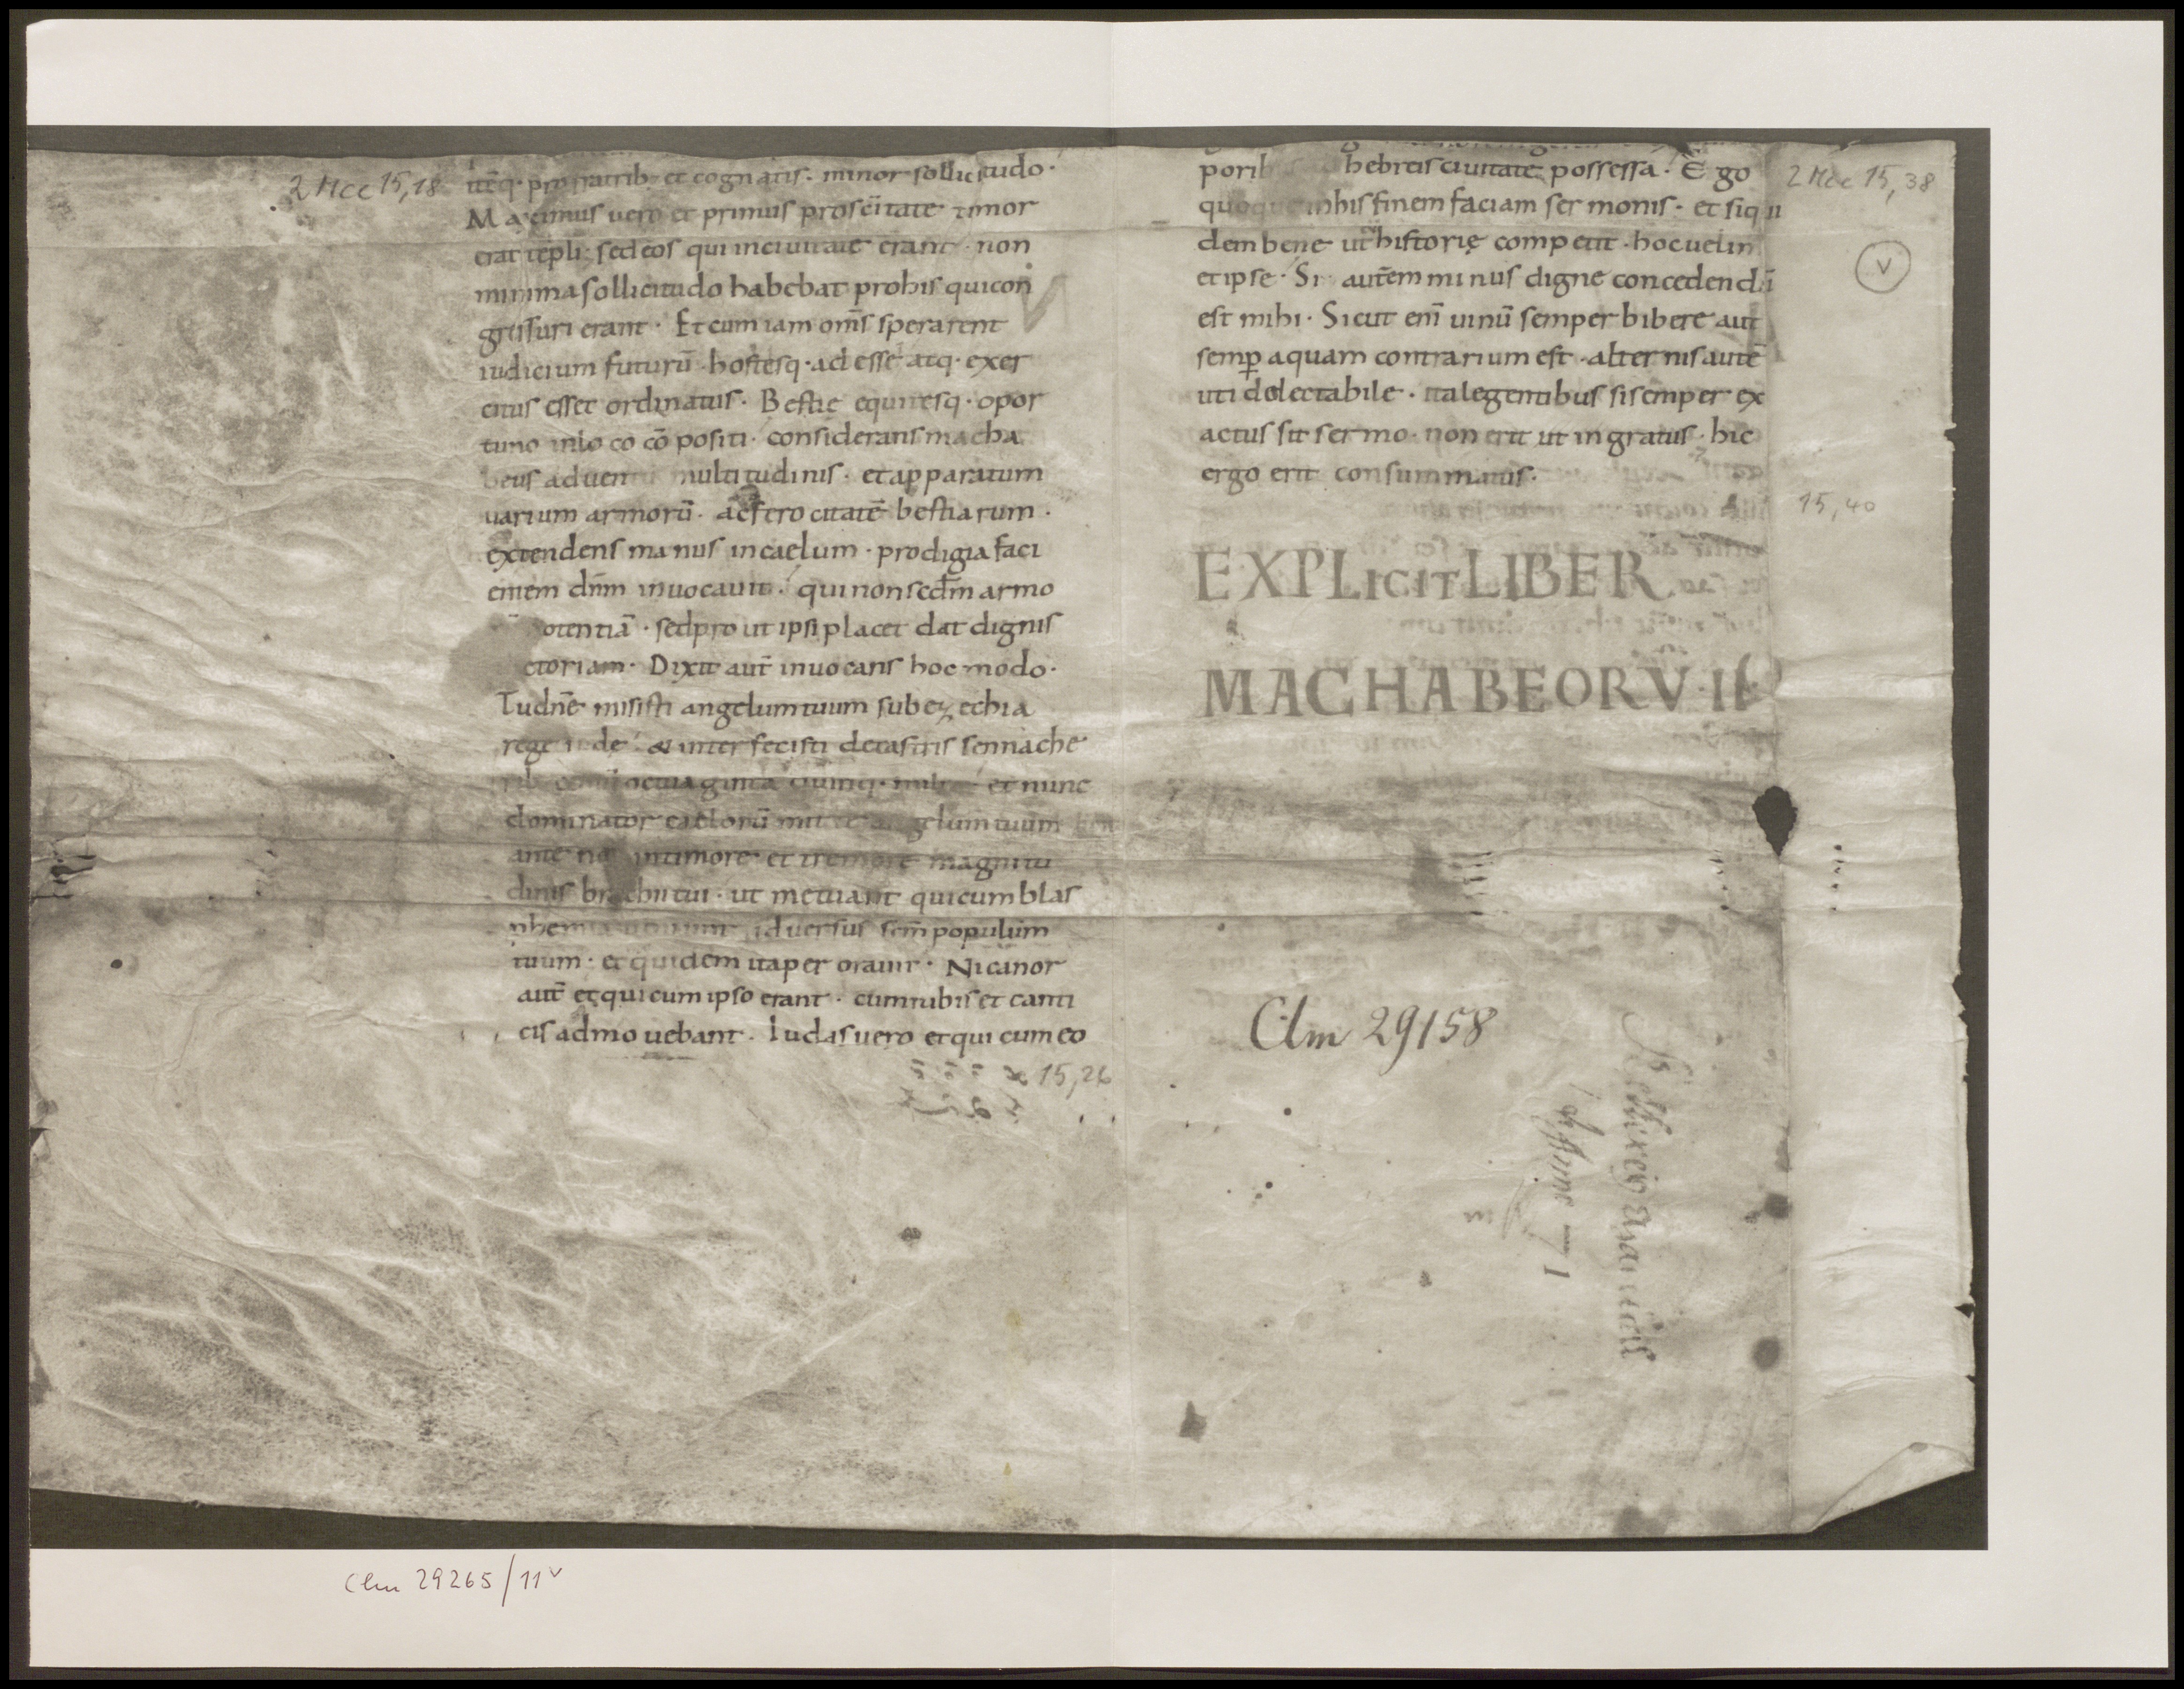 2 Mcc 15,18
itēq· profratrib; et cognatis· minor sollicitudo·
Maximus vero et primus proscitate timor
erat tēpli· sed eos qui inciuitate erant· non
minima sollicitudo habebat prohis qui con
gressuri erant· Et cum iam om̄s sperarent
iudicium futurū· hostesq· adesse atq· exer
citus esset ordinatus· Bestie equitesq· opor
tuno inloco cōpositi· considerans macha
beus adventū multitudinis· et apparatum
uarium armorū· ac ferocitatē bestiarum·
extendens manus incaelum· prodigia faci
entem dn̄m inuocauit· qui non secd̄m armo
potentiā· sed pro ut ipsi placet dat dignis
ctoriam· Dixit aut̄ inuocans hoc modo·
Tu dn̄e misisti angelum tuum sub ezechia
rege iude· & interfecisti decastris sennache
rib octuaginta quinq· milia et nunc
dominator caelorū mitte angelum tuum
ante nos intimore et tremore magnitu
dinis brachii tui· ut metuant qui cum blas
phemia adversus sc̄m populum
tuum· et quidem ita perorauit· Nicanor
aut̄ et qui cum ipso erant· cum tubis et canti
cis admouebant· Iudas uero et qui cum eo
15,26
porib hebreis ciuitate possessa· Ego
quoque inhis finem faciam sermonis· et siqui
dem bene ut historię competit· hoc uelim
et ipse· Si autem minus digne concedendū
est mihi· Sicut enī uinū semper bibere aut
semp aquam contrarium est· alternis autē
uti delectabile· ita legentibus si semper ex
actus sit sermo· non erit ut ingratus· hic
ergo erit consummatus·
EXPLICIT LIBER
MACHABEORV· II
2 Mcc 15,38
v
15,40
Clm 29158
Clm 29265/11v